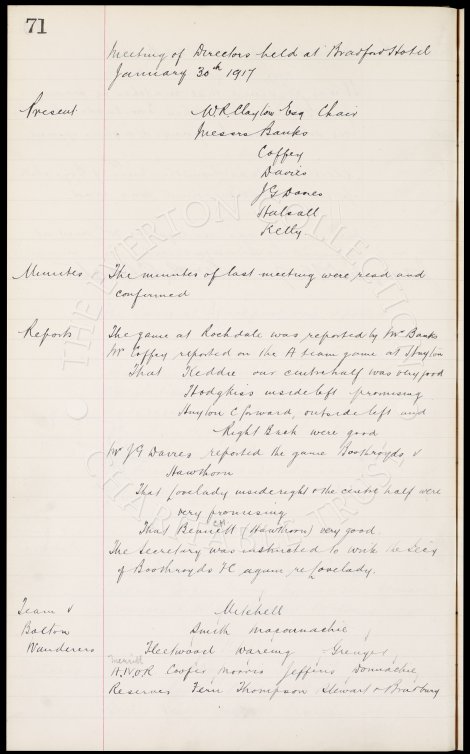 71
Meeting of Directors held at Bradford Hotel
January 30th 1917
Present W.R. Clayton Esq Chair
Messrs Banks
Coffey
Davies
J G Davies
Halsall
Kelly.
Minutes The minutes of last meeting were read and
confirmed
Reports The game at Rochdale was reported by Mr Banks
Mr Coffey reported on the A team game at Huyton
That Keddie our centre half was very good
Hodgkiss inside left promising
Huyton C forward, outside left and
Right Back were good
Mr J G Davies reported the game Boothroyds v
Hawthorn
That Lovelady inside right & the centre half were
very promising
That Bennett CH (Hawthorn) very good
The Secretary was instructed to write the Secy
of Boothroyds FC again re Lovelady.
Team v Mitchell
Bolton Smith Maconnachie
Wanderers Fleetwood Wareing Grenyer
Merritt
A.N.O.R Cooper Morris Jeffries Donnachie
Reserves Fern Thompson Stewart & Bradbury
© THE EVERTON COLLECTION
CHARITABLE TRUST